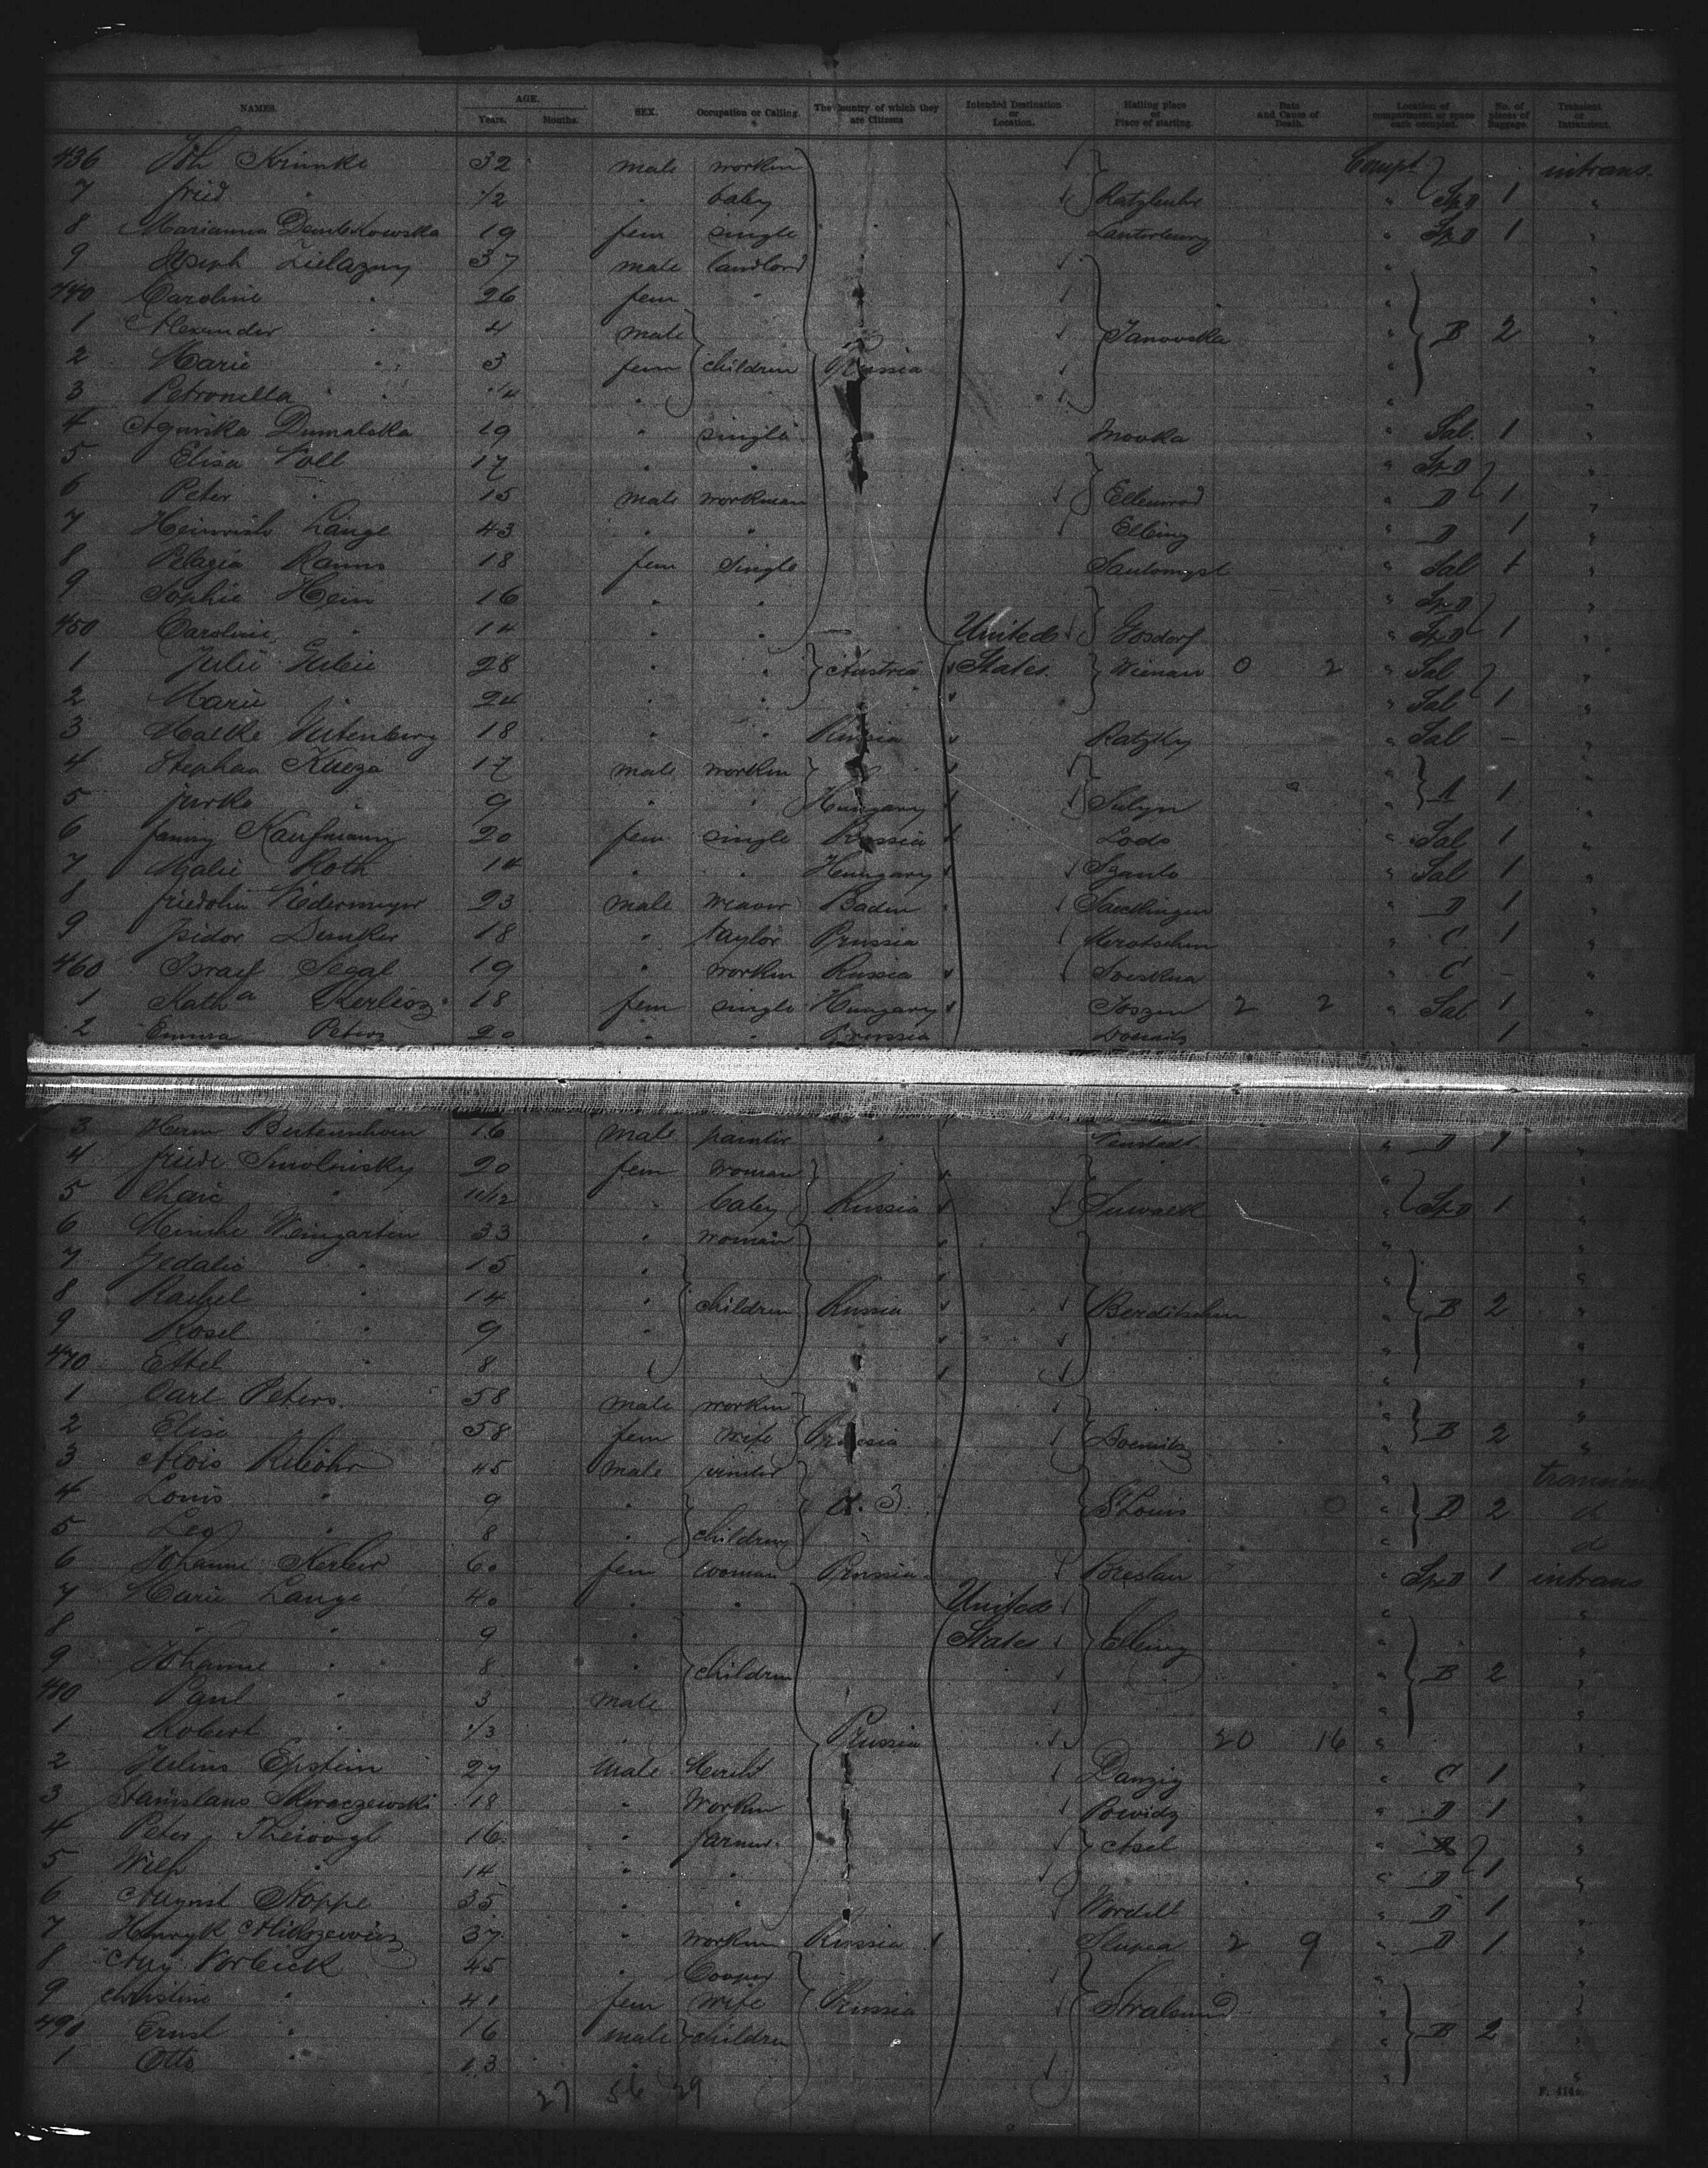 NAMES. AGE. Years. Months. SEX. Occupation or Calling. The Country of which they are Citizens Intended Destination or Location. Hailing place or Place of starting. Date and Cause of Death. Location of compartment or space each occupied. No. of pieces of Baggage. Transient or Intransient.
436 Joh Krimke 32 male workm Compt intrans.
7 fried " 1/2 " baby Ratzbuhr " Sp D 1 "
8 Marianna Dembkowska 19 fem single Lautenburg " Sp D 1 "
9 Joseph Zielazny 37 male landlord " "
440 Caroline " 26 fem " " "
1 Alexander " 4 male Janovska " B 2 "
2 Marie " 3 fem children Prussia " "
3 Petronella " 1/4 " " "
4 Agniska Dumalska 19 " single Movka " Sal. 1 "
5 Elisa Voll 17 " " " Sp D "
6 Peter " 15 male workman Ellenrod " D 1 "
7 Heinrich Lange 43 " " Elbing " D 1 "
8 Pelagia Ranns 18 fem Single Santomysl " Sal 1 "
9 Sophie Hein 16 " " " Sp D "
450 Caroline " 14 " " United Gosdorf " Sp D 1 "
1 Julie Gubie 28 " " Austria States. Wienau 0 2 " Sal "
2 Marie " 24 " " " Sal 1 "
3 Malke Gutenberg 18 " " Russia Ratzky " Sal – "
4 Stephan Kuega 17 male workm " "
5 jurko " 9 " " Hungary Sulyn " A 1 "
6 fanny Kaufmann 20 fem single Russia Lods " Sal 1 "
7 Malie Roth 14 " " Hungary Szanto " Sal 1 "
8 friedolin Niedermeyer 23 male weaver Baden Saeckingen " D 1 "
9 Isidor Dunker 18 " taylor Prussia Krotschin " C 1 "
460 Israel Segal 19 " workm Russia " C – "
1 Katha Kerliesz 18 fem single Hungary Joszen 2 2 " Sal 1 "
2 Emma Peters 20 " " Prussia Doemitz 1 "
3 Herm Bertenschoen 16 male painter " " D 1 "
4 friede Smolensky 20 fem woman " "
5 Chaie " 11/12 " baby Russia Suwalk " Sp D 1 "
6 Minche Weingarten 33 " woman " "
7 Gedalie " 15 " " "
8 Rachel " 14 " children Russia Berditschew " B 2 "
9 Rosel " 9 " " "
470 Ettel " 8 " "
1 Carl Peters. 58 male workm " "
2 Elise 58 fem wife Prussia Doemitz " B 2 "
3 Alois 45 male " transient
4 Louis " 9 " U. S. St Louis " D 2 do
5 Leo " 8 " children " do
6 Johanne Kerber 60 fem woman Prussia Breslau " Sp D 1 intrans
7 Marie Lange 40 " " United " "
8 " " 9 " States Elbing " "
9 Johanne " 8 " children " B 2 "
480 Paul " 3 male " "
1 Robert " 1/3 " Prussia 20 16 " "
2 Julius Epstein 27 male Mercht Danzig " C 1 "
3 Stanislaus Skoraczewski 18 " Workm Powidz " D 1 "
4 Peter 16 " farmer Asel " "
5 Wilh " 14 " " " D 1 "
6 August Noppe 35 " " Wordell " D 1 "
7 Henryk Mielczewicz 37 " workm Russia Slupca 2 9 " D 1 "
8 Aug Vorbeick 45 " Cooper " "
9 christine " 41 fem wife Prussia Stralsund " "
490 Ernst " 16 male children " B 2 "
1 Otto " 13 " " "
27 56 29
F. 414a.